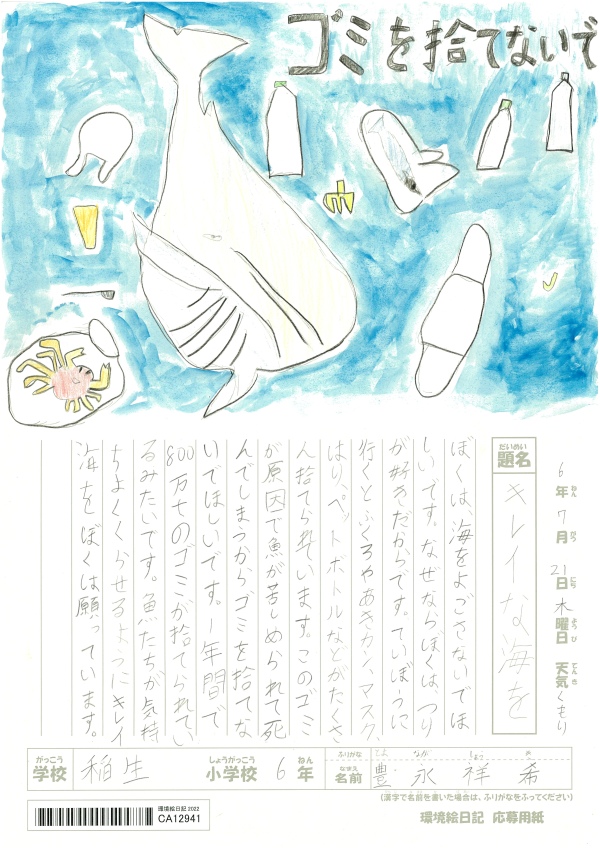 ゴミを捨てないで
6年7月21日木曜日 天気くもり
ねん がつ にち ようび てんき
だいめい
題名 キレイな海を
ぼくは、海をよごさないでほ
しいです。なぜならぼくは、つり
が好きだからです。ていぼうに
行くとふくろやあきカン、マスク、
はり、ペットボトルなどがたくさ
ん捨てられています。このゴミ
が原因で魚が苦しめられて死
んでしまうからゴミを捨てな
いでほしいです。1年間で
800万tのゴミが捨てられてい
るみたいです。魚たちが気持
ちよくくらせるようにキレイ
海をぼくは願っています。
がっこう しょうがっこう ねん ふりがな とよ なが
学校 稲生 小学校 6年
なまえ
名前 豊永祥希
(漢字で名前を書いた場合は、ふりがなをふってください)
環境絵日記 2022
CA12941
環境絵日記 応募用紙